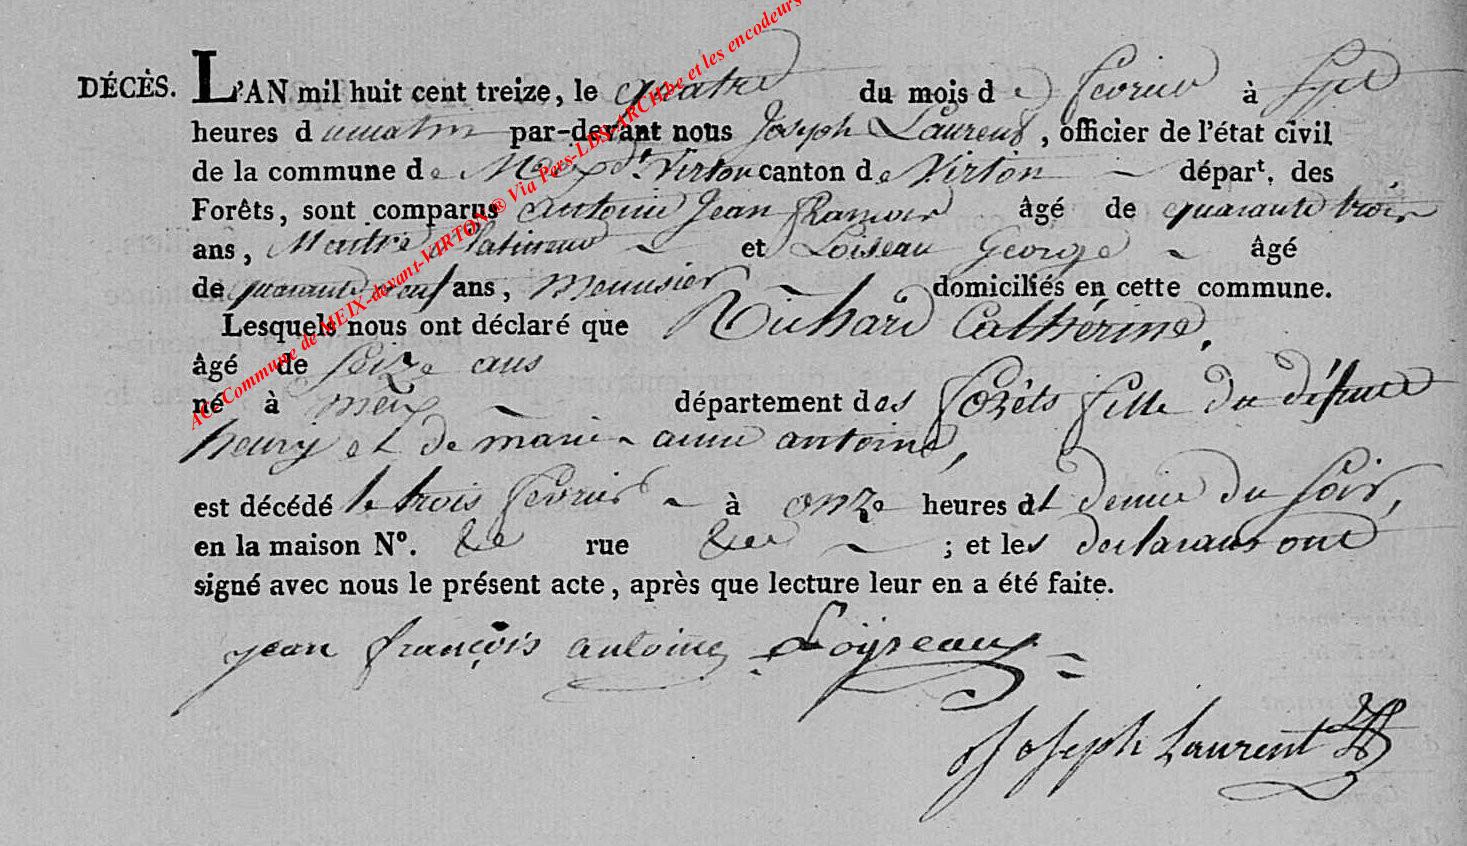 DÉCÈS. L'AN mil huit cent treize, le quatre du mois de fevrier à Sept
heures du matin par-devant nous Joseph Laurent, officier de l'état civil
de la commune de Meix dt. Virton canton de Virton départ. des
Forêts, sont comparus antoine Jean françois âgé de quarante trois
ans, Maitre Platineur et Loiseau George âgé
de quarante neuf ans, meunisier domiciliés en cette commune.
Lesquels nous ont déclaré que Richard Catherine,
âgé de seize ans
né à meix département des forêts fille du défunt
henry et de marie-anne antoine,
est décédé le trois fevrier à onze heures et demie du soir,
en la maison Nº. rue ; et les declarans ont
signé avec nous le présent acte, après que lecture leur en a été faite.
jean françois antoine Loÿseaux
Joseph Laurent
ACL-Commune de MEIX-devant-VIRTON® Via Pers-LDS/ARCH.be et les encodeurs